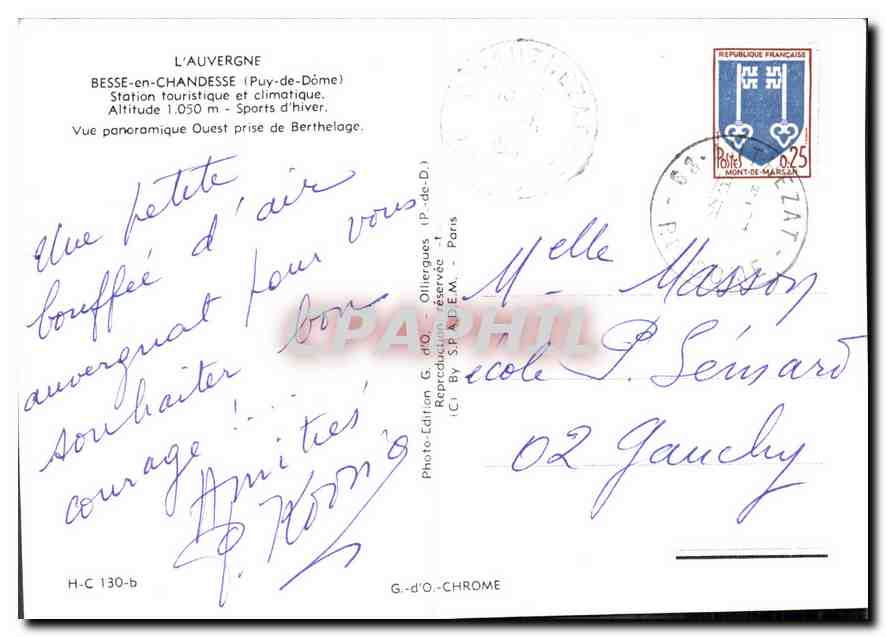 L'AUVERGNE
BESSE-en-CHANDESSE (Puy-de-Dôme)
Station touristique et climatique.
Altitude 1.050 m - Sports d'hiver.
Vue panoramique Ouest prise de Berthelage.
Une petite
bouffée d'air
auvergnat pour vous
souhaiter bon
courage !...
Amitiés
H-C 130-b
Photo-Edition G. d'O. - Olliergues (P.-de-D.)
Reproduction réservée -f-
(C) By S.P.A.D.E.M. - Paris
G.-d'O.-CHROME
CPAPHIL
REPUBLIQUE FRANÇAISE
Postes 0,25
MONT-DE-MARSAN
63
Melle Masson
école P. Sémard
02 Gauchy